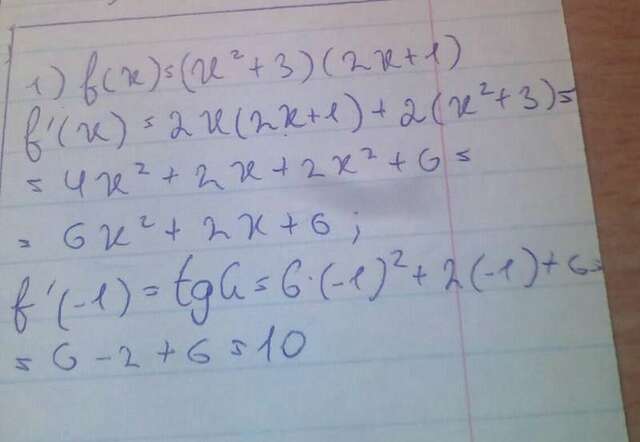 1) f(x)=(x²+3)(2x+1)
f'(x)=2x(2x+1)+2(x²+3)=
=4x²+2x+2x²+6=
=6x²+2x+6;
f'(-1)=tgα=6·(-1)²+2(-1)+6=
=6-2+6=10